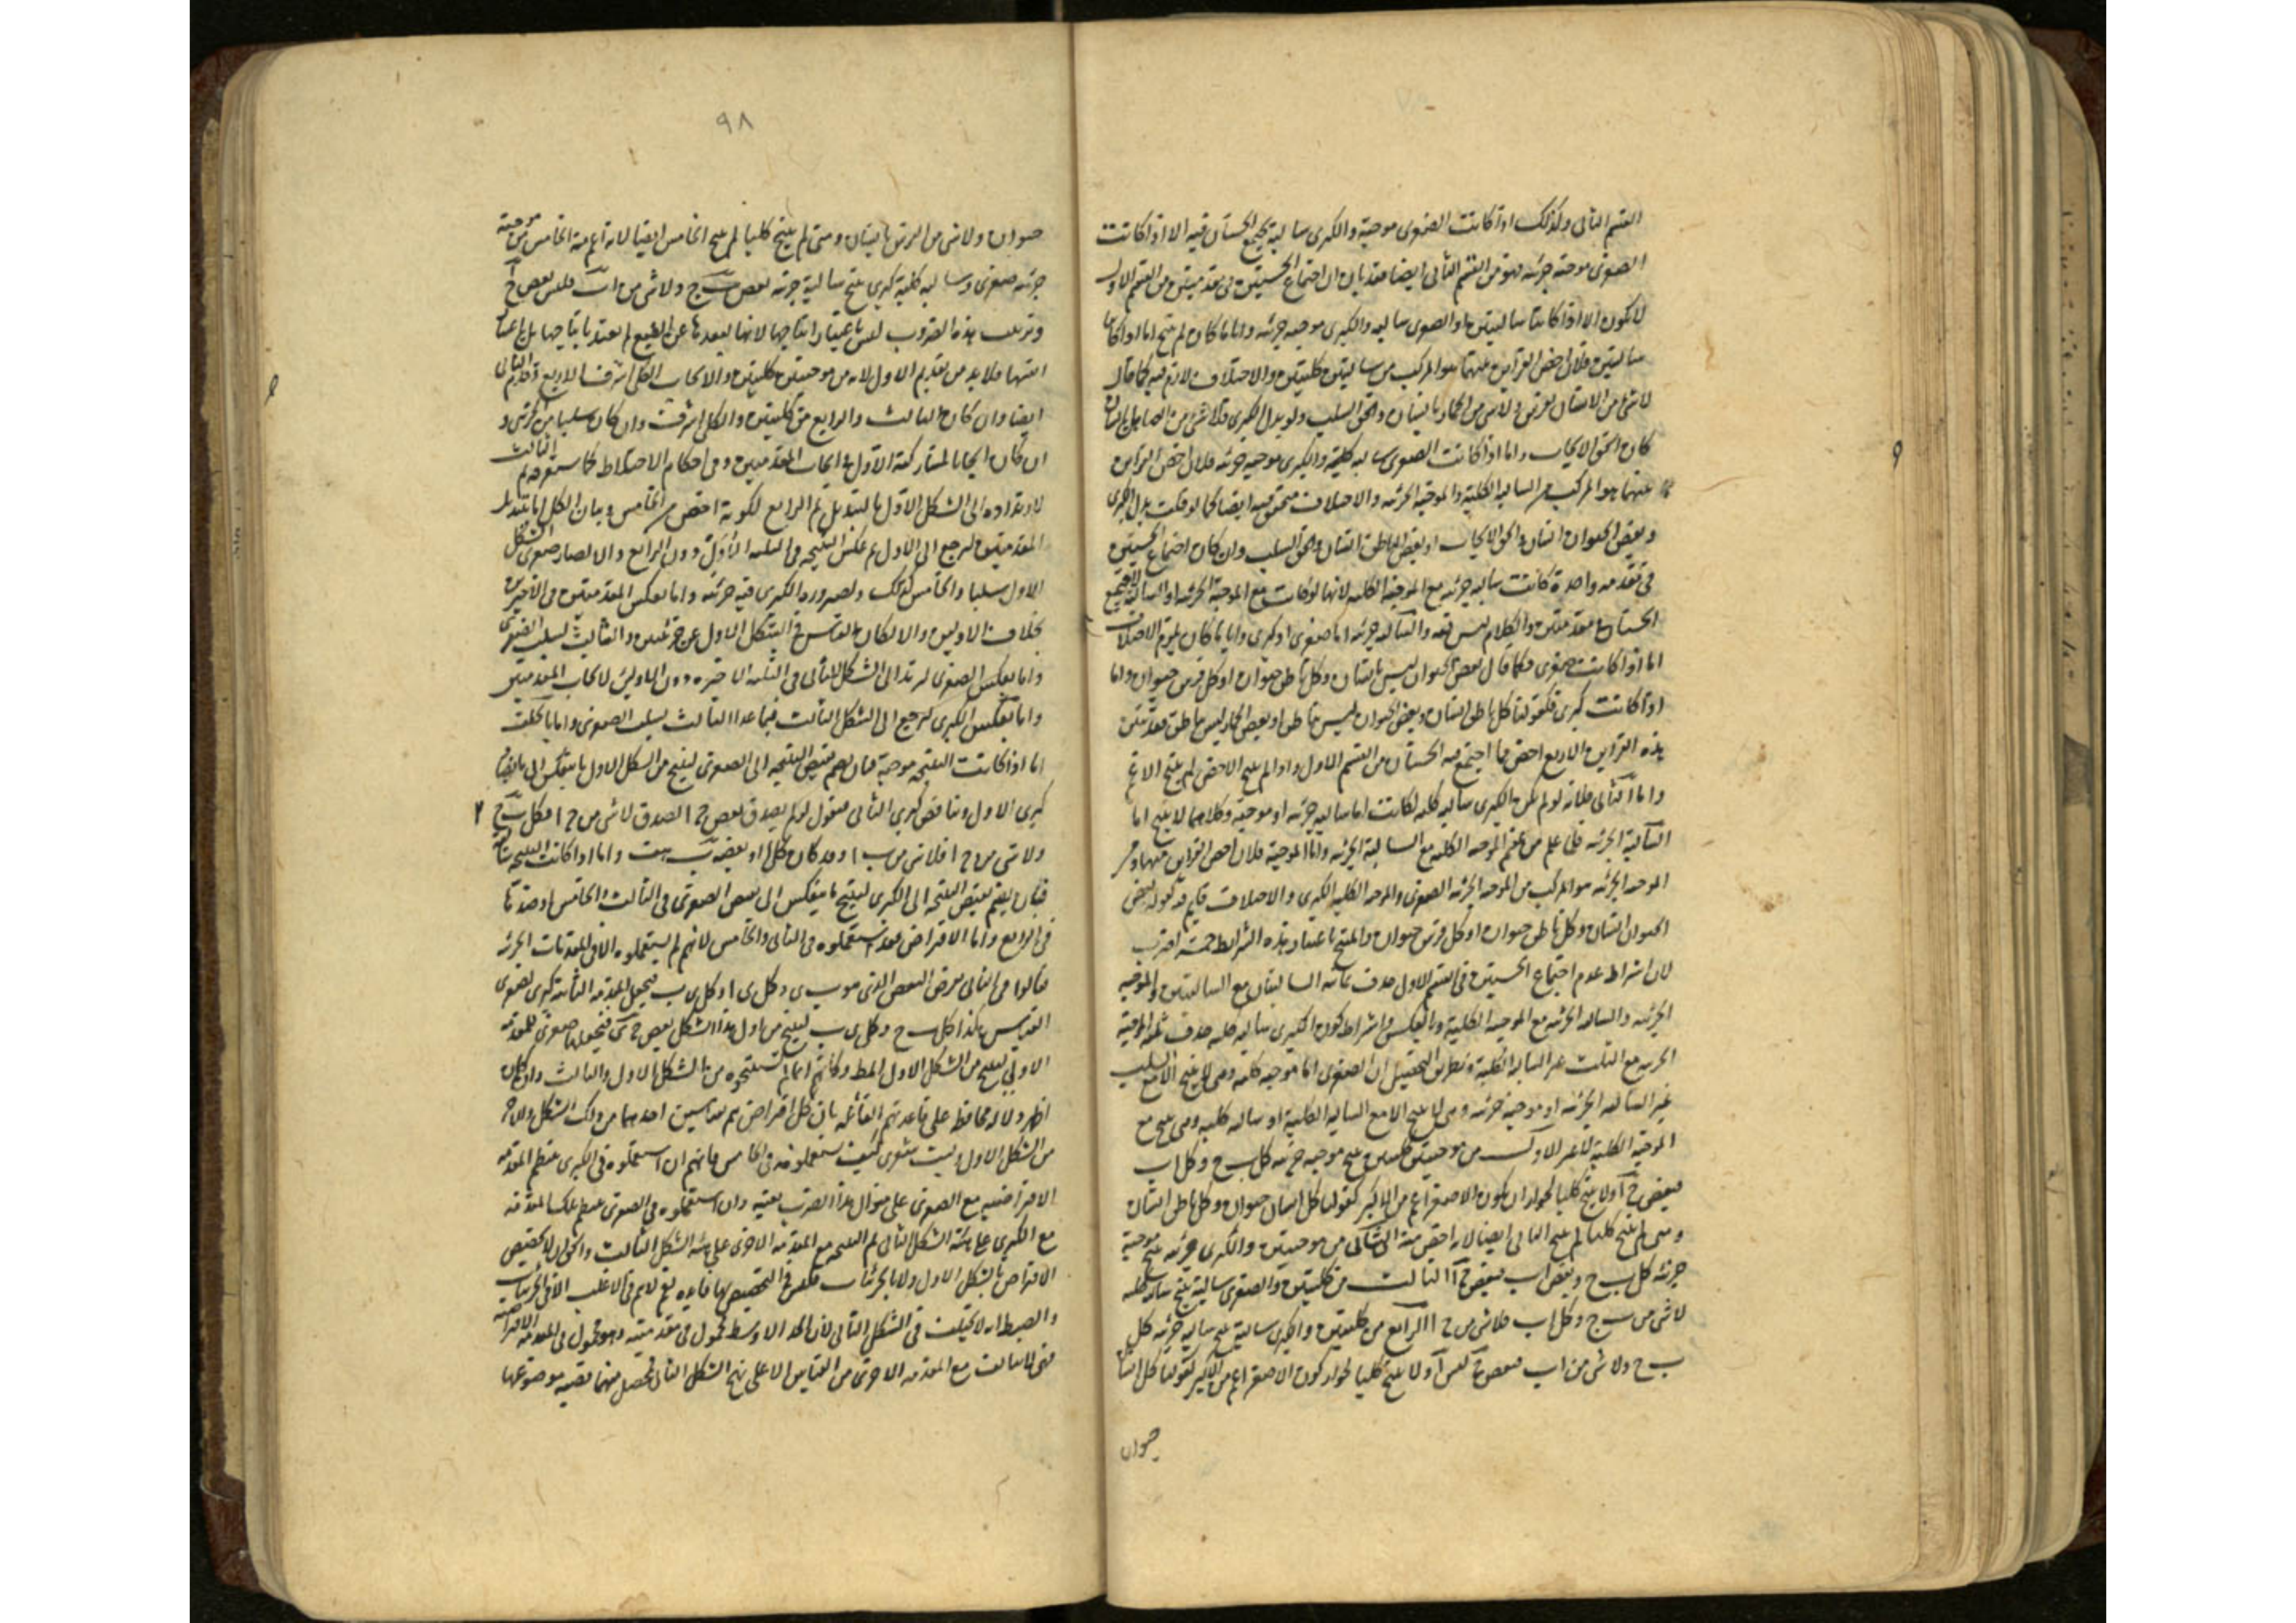 القسم الثاني وكذلك اذا كانت الصغرى موجبة والكبرى سالبة يجتمع الخستان فيه الا اذا كانت
الصغرى موجبة جزئية فهو من القسم الثاني ايضا معتد بان اجتماع الخستين في مقدمتين من القسم الاول
لا يكون الا اذا كانتا سالبتين او الصغرى سالبة والكبرى موجبة جزئية واياما كان لم ينتج اما اذا كانتا
سالبتين فلان اخص القراين منهما هو المركب من سالبتين كليتين والاختلاف لازم فيه كما قال
لا شئ من الانسان بفرس ولا شئ من الحمار بانسان والحق السلب ولو بدل الكبرى بلا شئ من الصاهل بانسان
كان الحق الايجاب واما اذا كانت الصغرى سالبة كلية والكبرى موجبة جزئية فلان اخص القراين
منهما هو المركب من السالبة الكلية والموجبة الجزئية والاختلاف متحقق فيه ايضا كما لو قلت بدل الكبرى
وبعض الحيوان انسان والحق الايجاب او بعض الناطق انسان والحق السلب وان كان اجتماع الخستين
في مقدمة واحدة كانت سالبة جزئية مع الموجبة الكلية لانها لو كانت مع الموجبة الجزئية او السالبة لاجتمع
الخستان في مقدمتين والكلام ليس فيه والسالبة الجزئية اما صغرى او كبرى واياما كان يلزم الاختلاف
اما اذا كانت صغرى فكما قال بعض الحيوان ليس بانسان وكل ناطق حيوان او كل فرس حيوان واما
اذا كانت كبرى فكقولنا كل ناطق انسان وبعض الحيوان ليس بناطق او بعض الحمار ليس بناطق
هذه القراين الاربع اخص مما اجتمع فيه الخستان من القسم الاول واذا لم ينتج الاخص لم ينتج الاعم
واما الثاني فلانه لو لم يكن الكبرى سالبة كلية لكانت اما سالبة جزئية او موجبة وكلاهما لا ينتج اما
السالبة الجزئية فلما علم من عقم الموجبة الكلية مع السالبة الجزئية واما الموجبة فلان اخص القراين منها
الموجبة الجزئية هو المركب من الموجبة الجزئية الصغرى والموجبة الكلية الكبرى والاختلاف قايم فيه كقوله بعض
الحيوان انسان وكل ناطق حيوان او كل فرس حيوان والمنتج باعتبار هذه الشرايط خمسة اضرب
لان اشتراط عدم اجتماع الخستين في القسم الاول حذف ثمانية السالبتان مع السالبتين والموجبة
الجزئية والسالبة الجزئية مع الموجبة الكلية وبالعكس واشتراط كون الكبرى سالبة كلية حذف ثلثة الموجبة
الجزئية مع الثلث غير السالبة الكلية وبطريق التحصيل ان الصغرى اما موجبة كلية وهي لا ينتج الا مع السلب
غير السالبة الجزئية او موجبة جزئية وهي لا ينتج الا مع السالبة الكلية او سالبة كلية وهي ينتج مع
الموجبة الكلية لا غير الاول من موجبتين كليتين ينتج موجبة جزئية كل ب ج وكل ا ب
فبعض ج ا ولا ينتج كليا لجواز ان يكون الاصغر اعم من الاكبر كقولنا كل انسان حيوان وكل ناطق انسان
ومتى لم ينتج كليا لم ينتج الثاني ايضا لانه اخص منه الثاني من موجبتين والكبرى جزئية ينتج موجبة
جزئية كل ب ج وبعض ا ب فبعض ج ا الثالث من كليتين والصغرى سالبة ينتج سالبة كلية
لا شئ من ب ج وكل ا ب فلا شئ من ج ا الرابع من كليتين والكبرى سالبة ينتج سالبة جزئية كل
ب ج ولا شئ من ا ب فبعض ج ليس ا ولا ينتج كليا لجواز كون الاصغر اعم من الاكبر كقولنا كل انسان
حيوان
٩٨
حيوان ولا شئ من الفرس بانسان ومتى لم ينتج كليا لم ينتج الخامس ايضا لانه اعم منه الخامس من موجبة
جزئية صغرى وسالبة كلية كبرى ينتج سالبة جزئية بعض ب ج ولا شئ من ا ب فليس بعض ج ا
وترتيب هذه الضروب ليس باعتبار انتاجها لانها لبعدها عن الطبع لم يعتد بانتاجها بل باعتبار
انفسها فلا بد من تقديم الاول لانه من موجبتين كليتين والايجاب الكلي اشرف الاربع وقدم الثاني
ايضا وان كان الثالث والرابع من كليتين والكلي اشرف وان كان سلبا من الجزئي و
ان كان ايجابا لمشاركته الاول في ايجاب المقدمتين وفي احكام الاختلاط كما ستعرفه ثم الثالث
لارتداده الى الشكل الاول بالتبديل ثم الرابع لكونه اخص من الخامس وبيان الكل اما بتبديل
المقدمتين ليرجع الى الاول ثم عكس النتيجة في الثلثة الاول دون الرابع والا لصار صغرى الشكل
الاول سلبا والخامس كذلك ولصيرورة الكبرى فيه جزئية واما بعكس المقدمتين في الاخيرين
بخلاف الاولين والا لكان القياس في الشكل الاول عن جزئيتين والثالث لسلب الصغرى
واما بعكس الصغرى ليرتد الى الشكل الثاني في الثلثة الاخيرة دون الاولين لايجاب المقدمتين
واما بعكس الكبرى ليرجع الى الشكل الثالث فيما عدا الثالث لسلب الصغرى واما بالخلف
اما اذا كانت النتيجة موجبة فبان يضم نقيض النتيجة الى الصغرى لينتج من الشكل الاول ما ينعكس الى ما يناقض
كبرى الاول ويناقض كبرى الثاني فنقول لو لم يصدق بعض ج ا لصدق لا شئ من ج ا فكل ب ج
ولا شئ من ج ا فلا شئ من ب ا وقد كان كل ا او بعضه ب هف واما اذا كانت النتيجة سالبة
فبان يضم نقيض النتيجة الى الكبرى لينتج ما ينعكس الى نقيض الصغرى في الثالث والخامس او ضدها
في الرابع واما الافتراض فقد استعملوه في الثاني والخامس لانهم لم يستعملوه الا في المقدمات الجزئية
فقالوا في الثاني نفرض البعض الذي هو ب ى فكل ى ا وكل ى ب فيجعل المقدمة الثانية كبرى لصغرى
القياس هكذا كل ب ج وكل ى ب لينتج من اول هذا الشكل بعض ج ى فنجعلها صغرى للمقدمة
الاولى لينتج من الشكل الاول المط وكانهم انما لم يستنتجوه من الشكل الاول والثالث وان كان
اظهر دلالة محافظة على قاعدتهم القائلة بان كل افتراض يتم بقياسين احدهما من ذلك الشكل والاخر
من الشكل الاول وليت شعري كيف يستعملونه في الخامس فانهم ان استعملوه في الكبرى ينظم المقدمة
الافتراضية مع الصغرى على منوال هذا الضرب بعينه وان استعملوه في الصغرى ينظم تلك المقدمة
مع الكبرى على هيئة الشكل الثاني ثم النتيجة مع المقدمة الاخرى على هيئة الشكل الثالث والحق ان لا تخصيص
الافتراض بالشكل الاول ولا بالجزئيات فليس في التخصيص بها فايدة نعم لا يتم في الاغلب الا في الجزئيات
والضبط انه لا يثبت في الشكل الثاني لان الحد الاوسط محمول في مقدمتيه وهو محمول في المقدمة الافتراضية
فهي لا يتالف مع المقدمة الاخرى من القياس الا على نهج الشكل الثاني فحصل منهما قضية موضوعها